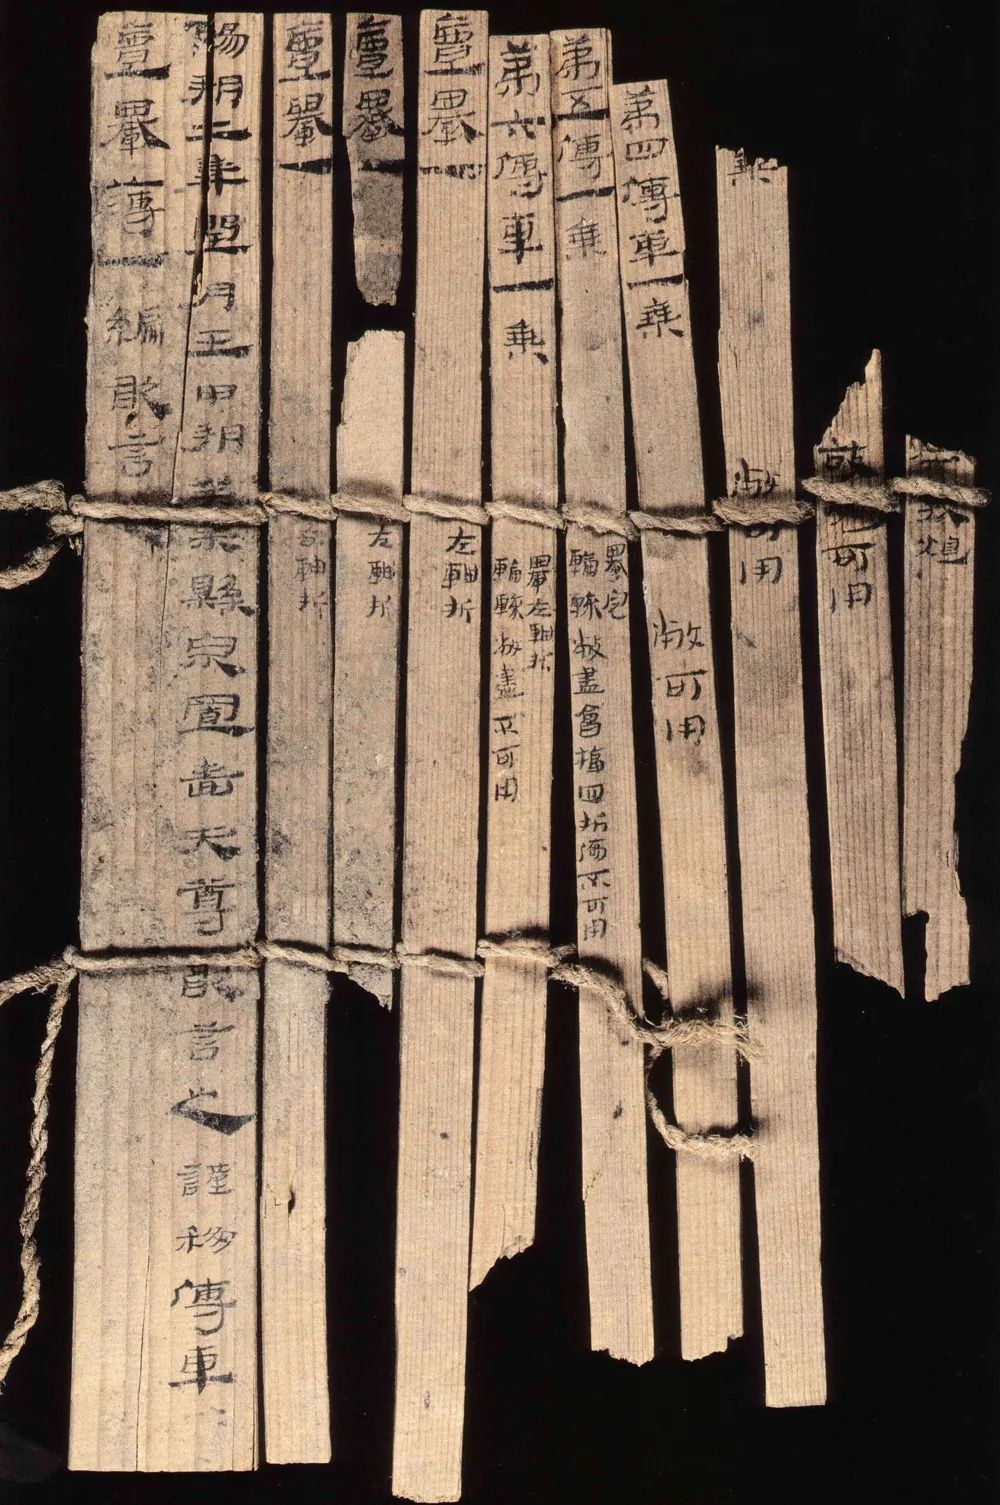 可用
乘 敝可用
第四傳車一乘 敝可用
第五傳一乘 轝完
輪轅敝盡會楅四折傷不可用
第六傳車一乘 轝左軸折
輪轅敝盡不可用
亶轝一 左軸折
亶轝一 左軸折
亶轝一 右軸折
陽朔二年閏月壬申朔癸未縣泉置嗇夫尊敢言之謹移傳車
亶轝簿一編敢言之